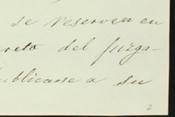 se reserven en
reto del Juzga-
ublicarse a su
2